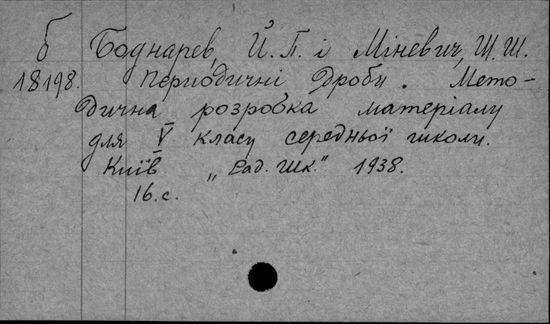 Б Боднарев, Й. П. і Міневич, Ш. Ш.
18198. Періодичні Дроби. Мето-
дична розробка матеріалу
для V класу середньої школи.
Київ „Рад. Шк." 1938.
16. с.